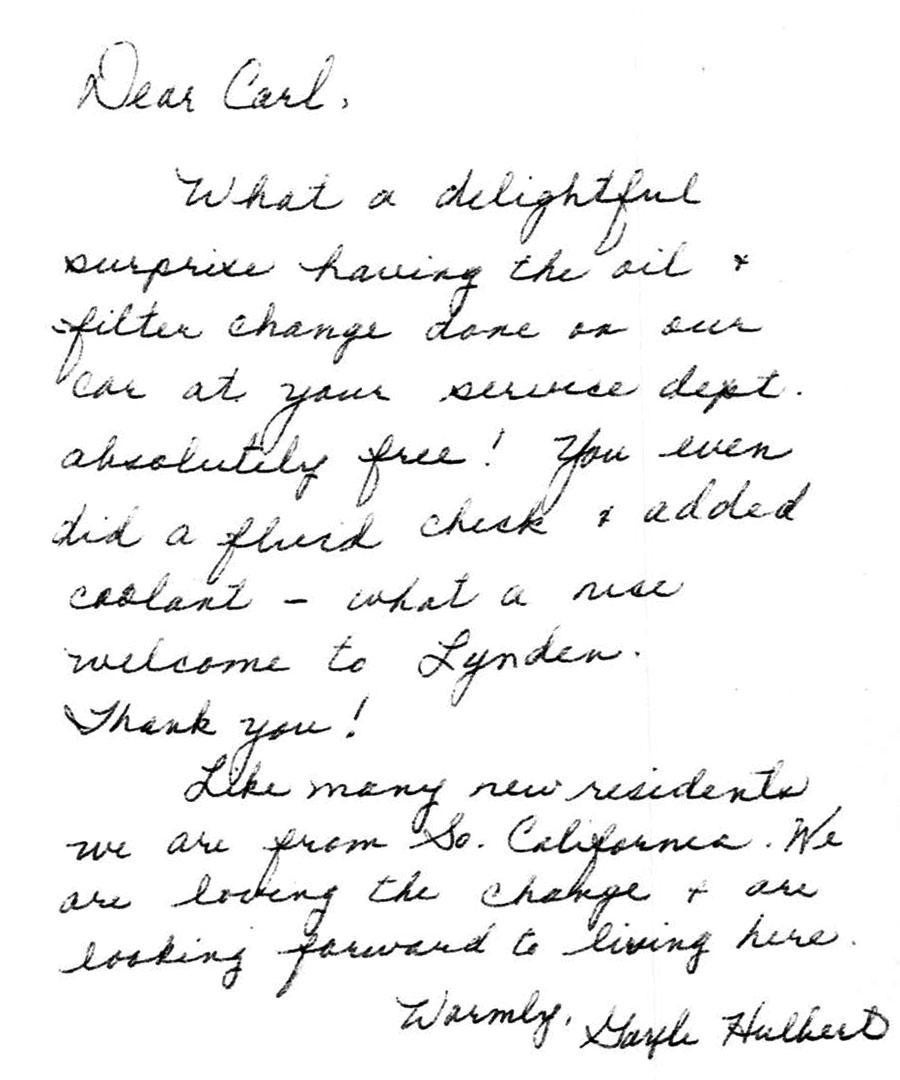 Dear Carl,
What a delightful
surprise having the oil &
filter change done on our
car at your service dept.
absolutely free! You even
did a fluid check & added
coolant – what a nice
welcome to Lynden.
Thank you!
Like many new residents
we are from So. California. We
are loving the change & are
looking forward to living here.
Warmly, Gayle Hulbert